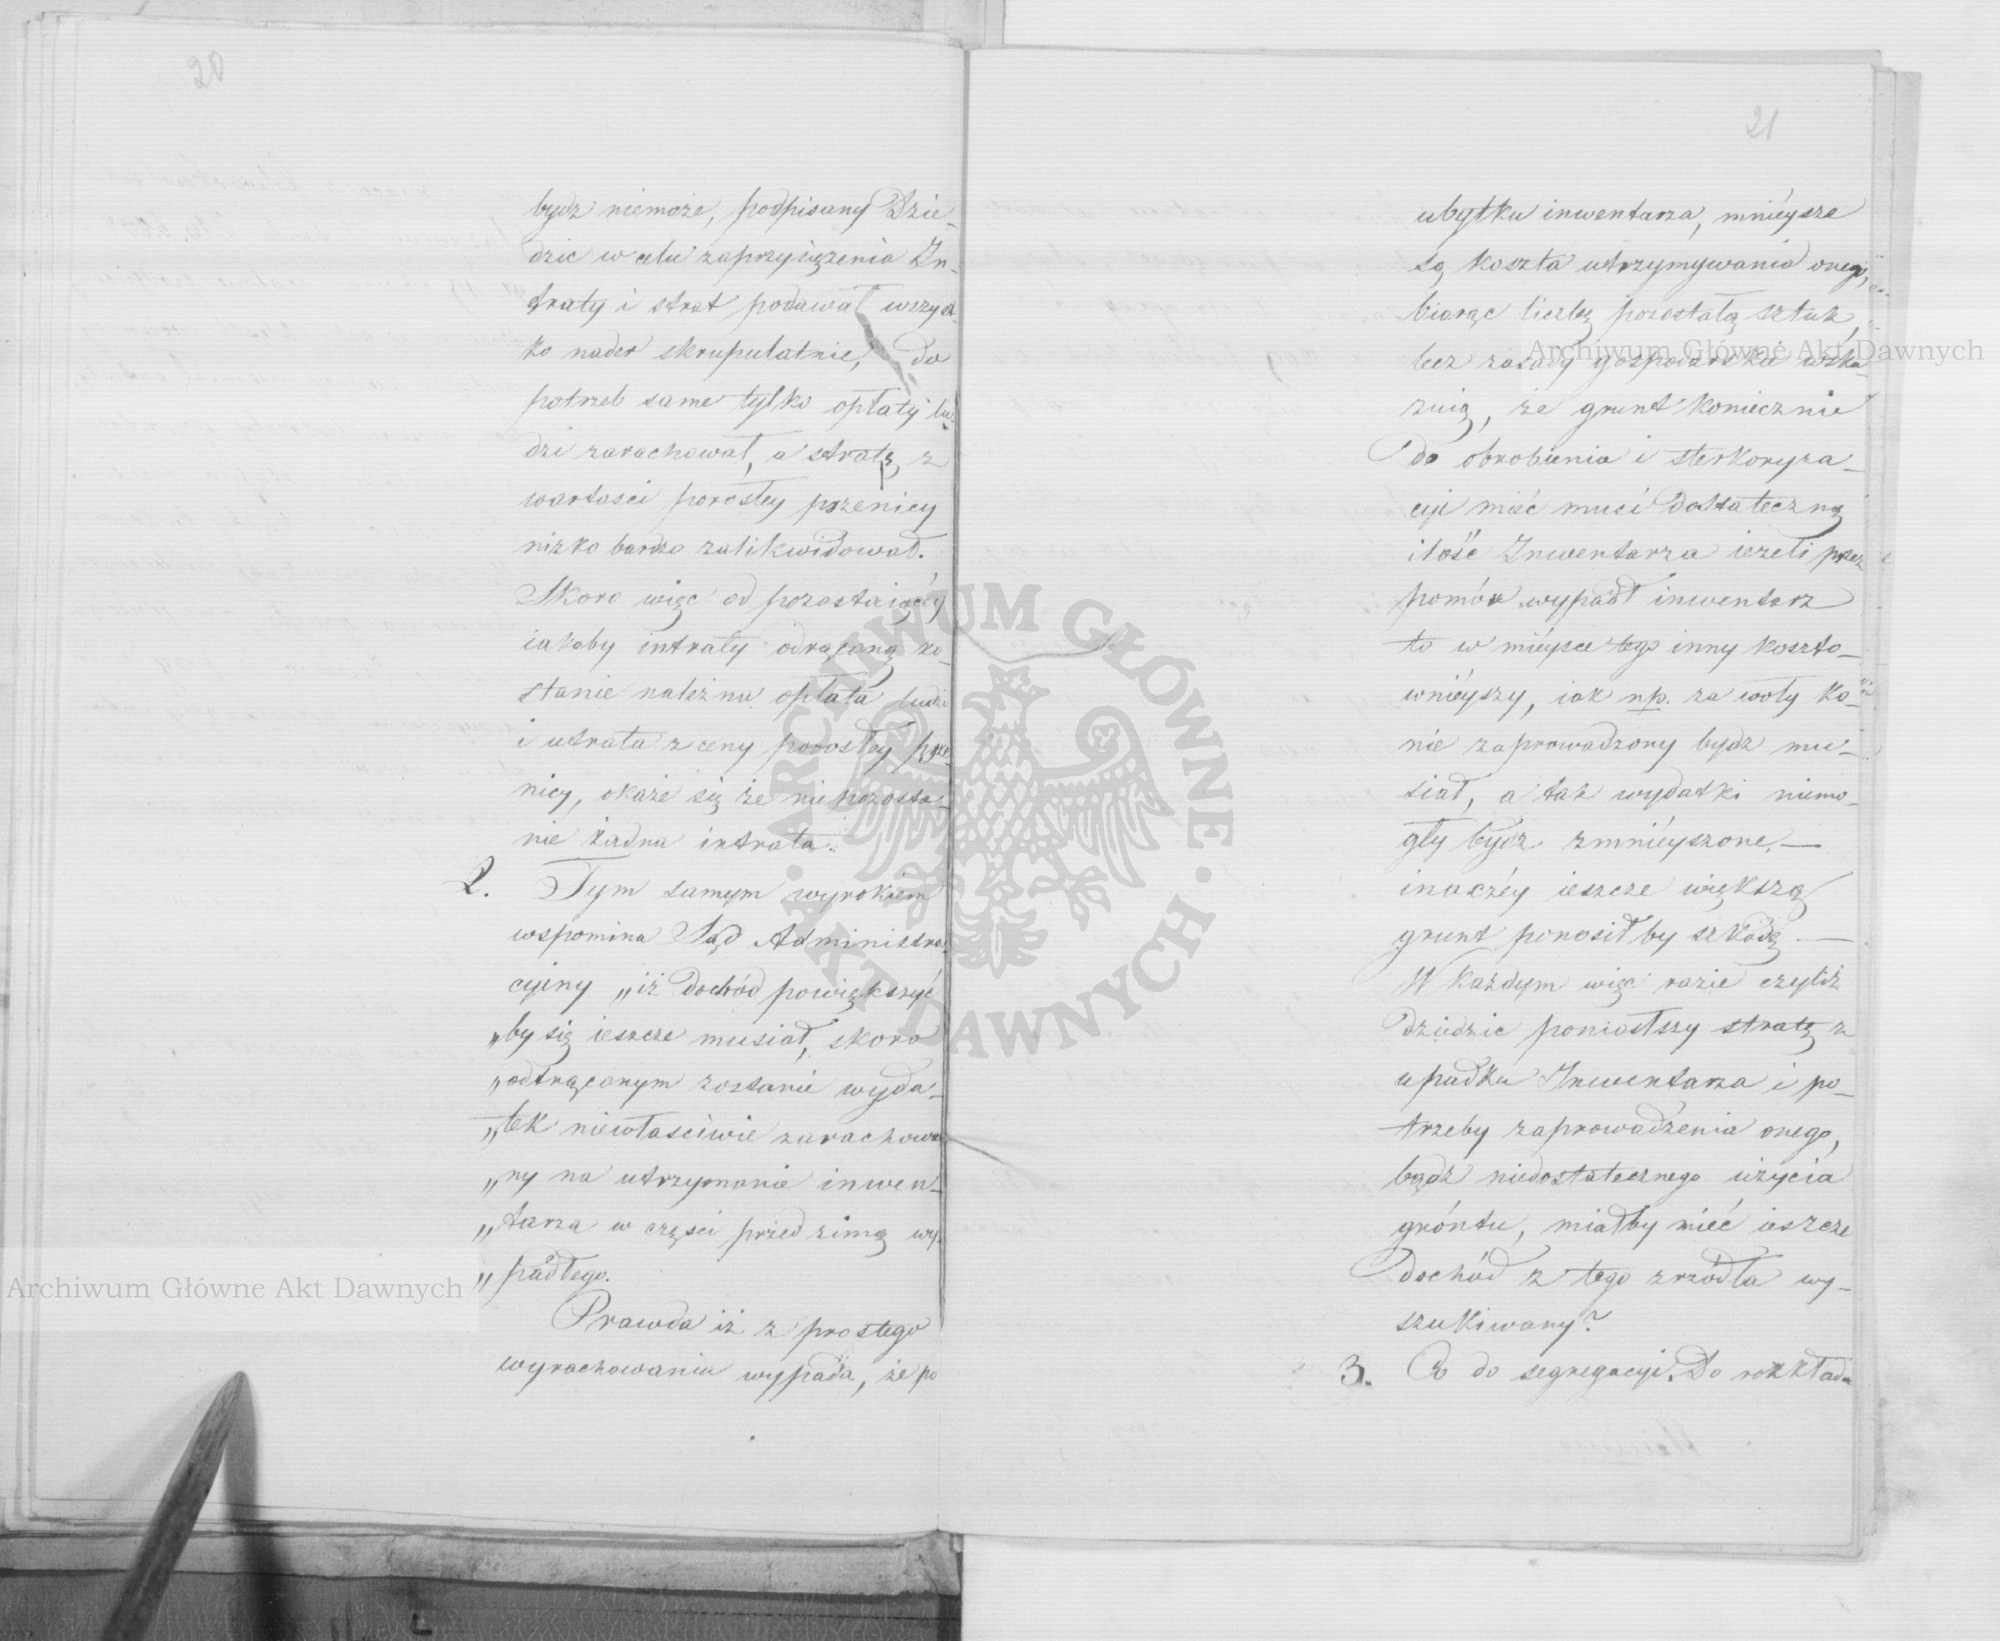 20
bydz niemoże, podpisany Dzie-
dzic w celu zaprzysiężenia In-
traty i strat podawał wszyst-
ko nader skrupulatnie, do
potrzeb same tylko opłaty lu-
dzi zarachował, a stratę z
wartości porosłey przenicy
nizko bardzo zalikwidował.
Skoro więc od pozostaiącéy
iakoby intraty odrąconą zo-
stanie należna opłata ludzi
i utrata z ceny porosłey prze-
nicy, okaże się że nie pozosta-
nie żadna intrata.
2. Tym samym wyrokiem
wspomina Sąd Administra-
cyiny „iż dochód powiększyć
„by się ieszcze musiał, skoro
„odtrąconym zostanie wyda-
„tek niewłaściwie zarachowa-
„ny na utrzymanie inwen-
„tarza w części przed zimą wy-
„padłego.
Prawda iż z prostego
wyrachowania wypada, że po
21
ubytku inwentarza, mnieysze
są koszta utrzymywania onego,
biorąc liczbę pozostałą sztuk,
lecz zasady gospodarskie wska-
zuią, że grunt koniecznie
do obrobienia i sterkoryza-
cyi mieć musi dostateczną
ilość Inwentarza ieżeli przez
pomór wypadł inwentarz
to w mieysce tego inny koszto-
wnieyszy, iak np. za woły ko-
nie zaprowadzony bydz mu-
siał, a tak wydatki niemo-
gły bydz zmnieyszone, —
inaczéy ieszcze większą
grunt ponosiłby szkodę —
W każdym więc razie czyliż
dziedzic poniosłszy stratę z
upadku Inwentarza i po-
trzeby zaprowadzenia onego,
bądz niedostatecznego użycia
gróntu, miałby mieć ieszcze
dochód z tego zrzódła wy-
szukiwany?
3. Co do segregacyi. Do rozkładu
Archiwum Główne Akt Dawnych
Archiwum Główne Akt Dawnych
ARCHIWUM GŁÓWNE · AKT DAWNYCH ·